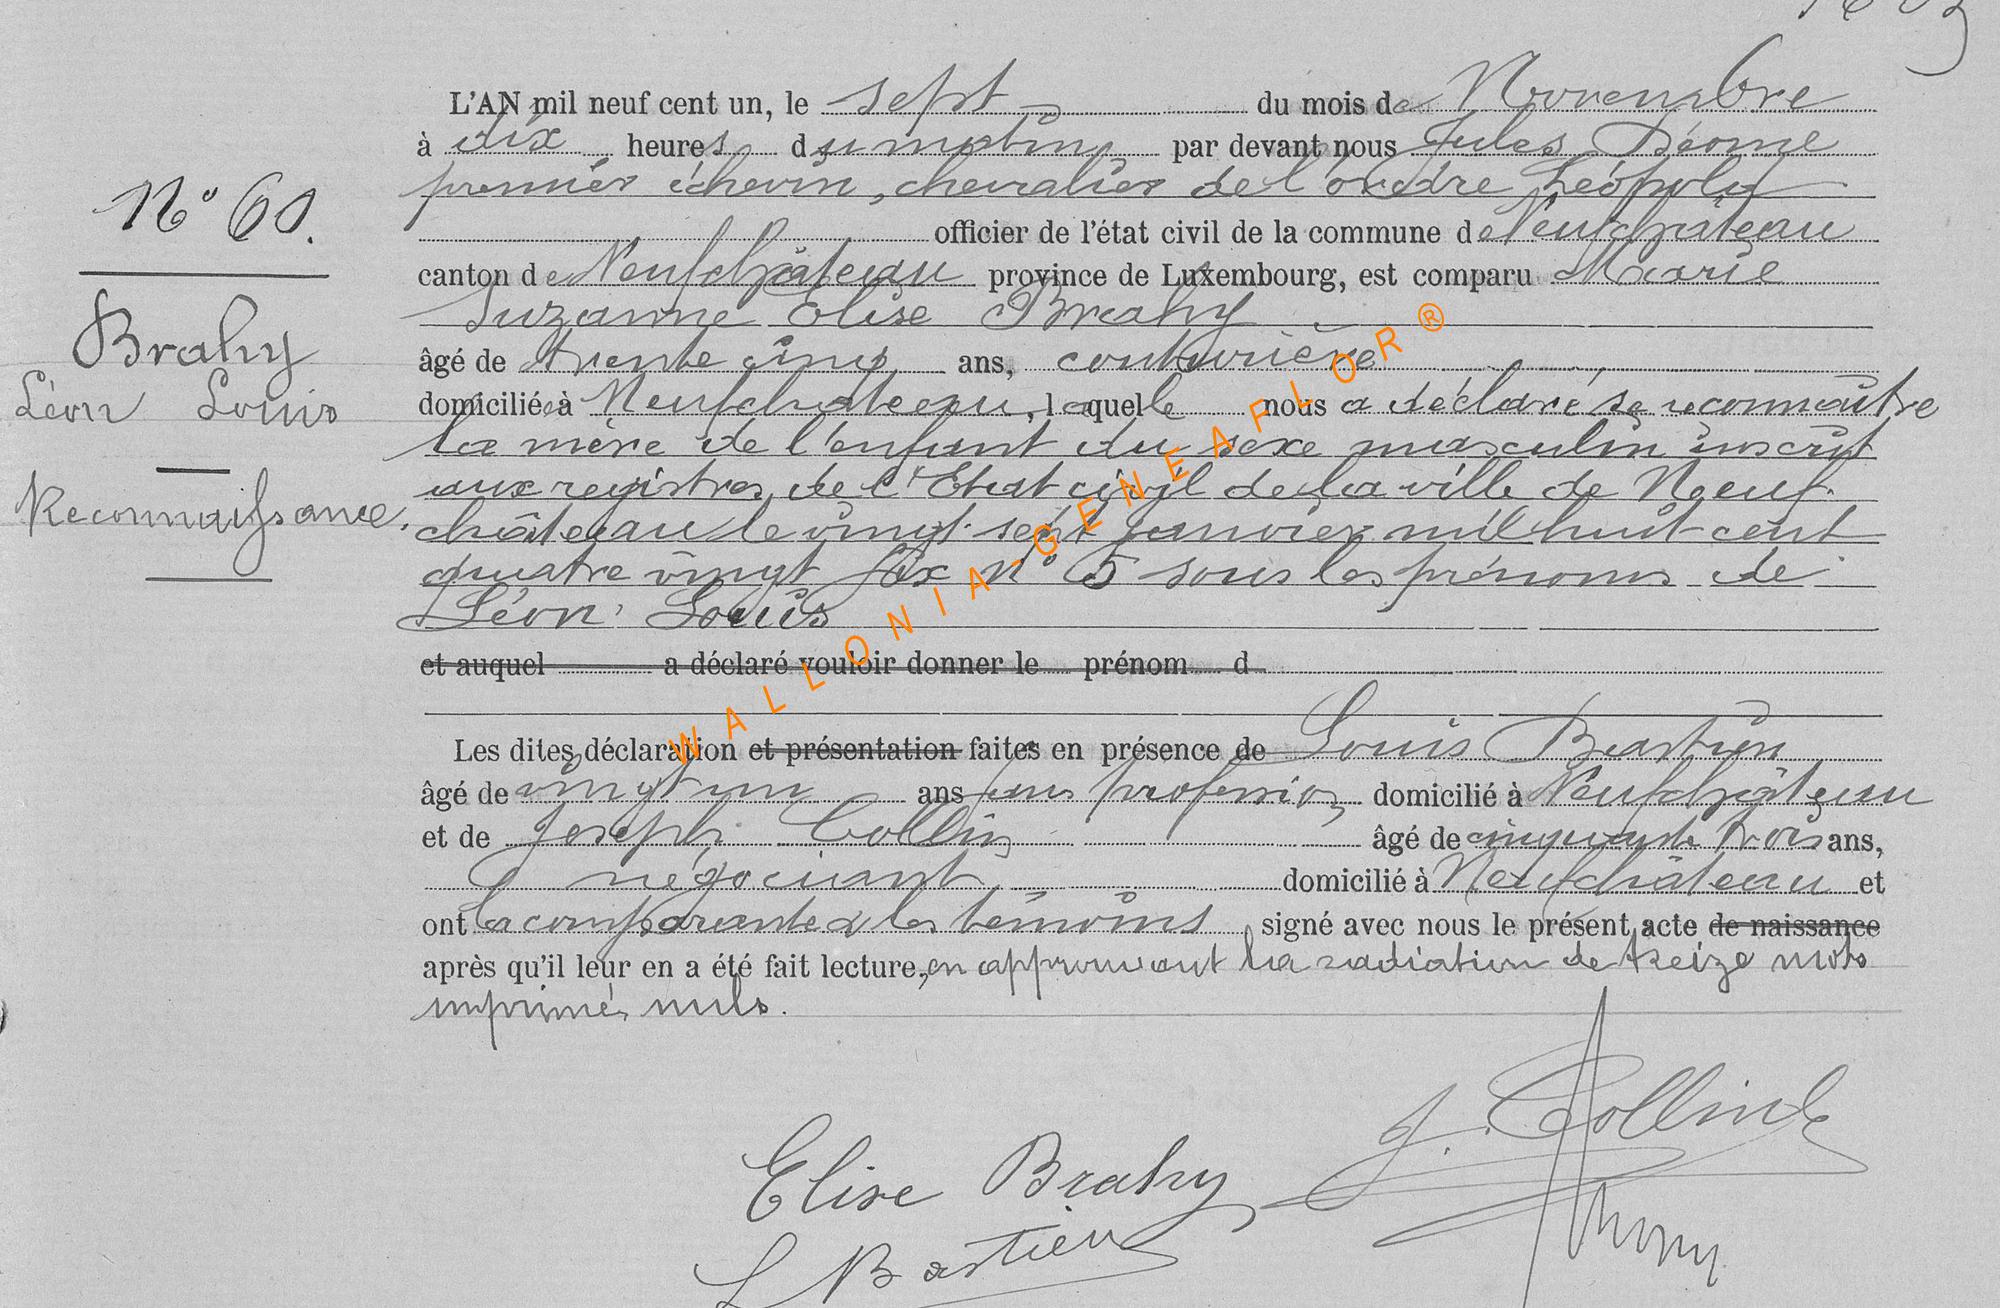 N° 60.
Brahy
Léon Louis
Reconnaissance.
L'AN mil neuf cent un, le sept du mois de Novembre
à dix heures du matin par devant nous Jules Déome
premier échevin, chevalier de l'ordre Léopold
officier de l'état civil de la commune de Neufchâteau
canton de Neufchâteau province de Luxembourg, est comparu Marie
Suzanne Elise Brahy
âgé de trente cinq ans, couturière
domiciliée à Neufchâteau, laquelle nous a déclaré se reconnaître
la mère de l'enfant du sexe masculin inscrit
aux registres de l'Etat civil de la ville de Neuf-
château le vingt sept janvier mil huit cent
quatre vingt six n° 5 sous les prénoms de
Léon Louis
et auquel a déclaré vouloir donner le prénom d
Les dites déclaration et présentation faites en présence de Louis Bastien
âgé de vingt un ans sans profession domicilié à Neufchâteau
et de Joseph Collin âgé de cinquante trois ans,
négociant domicilié à Neufchâteau et
ont la comparante & les témoins signé avec nous le présent acte de naissance
après qu'il leur en a été fait lecture, en approuvant la radiation de treize mots
imprimés nuls.
J. Collin
Elise Brahy
L Bastien
WALLONIA-GENEAFLOR ®